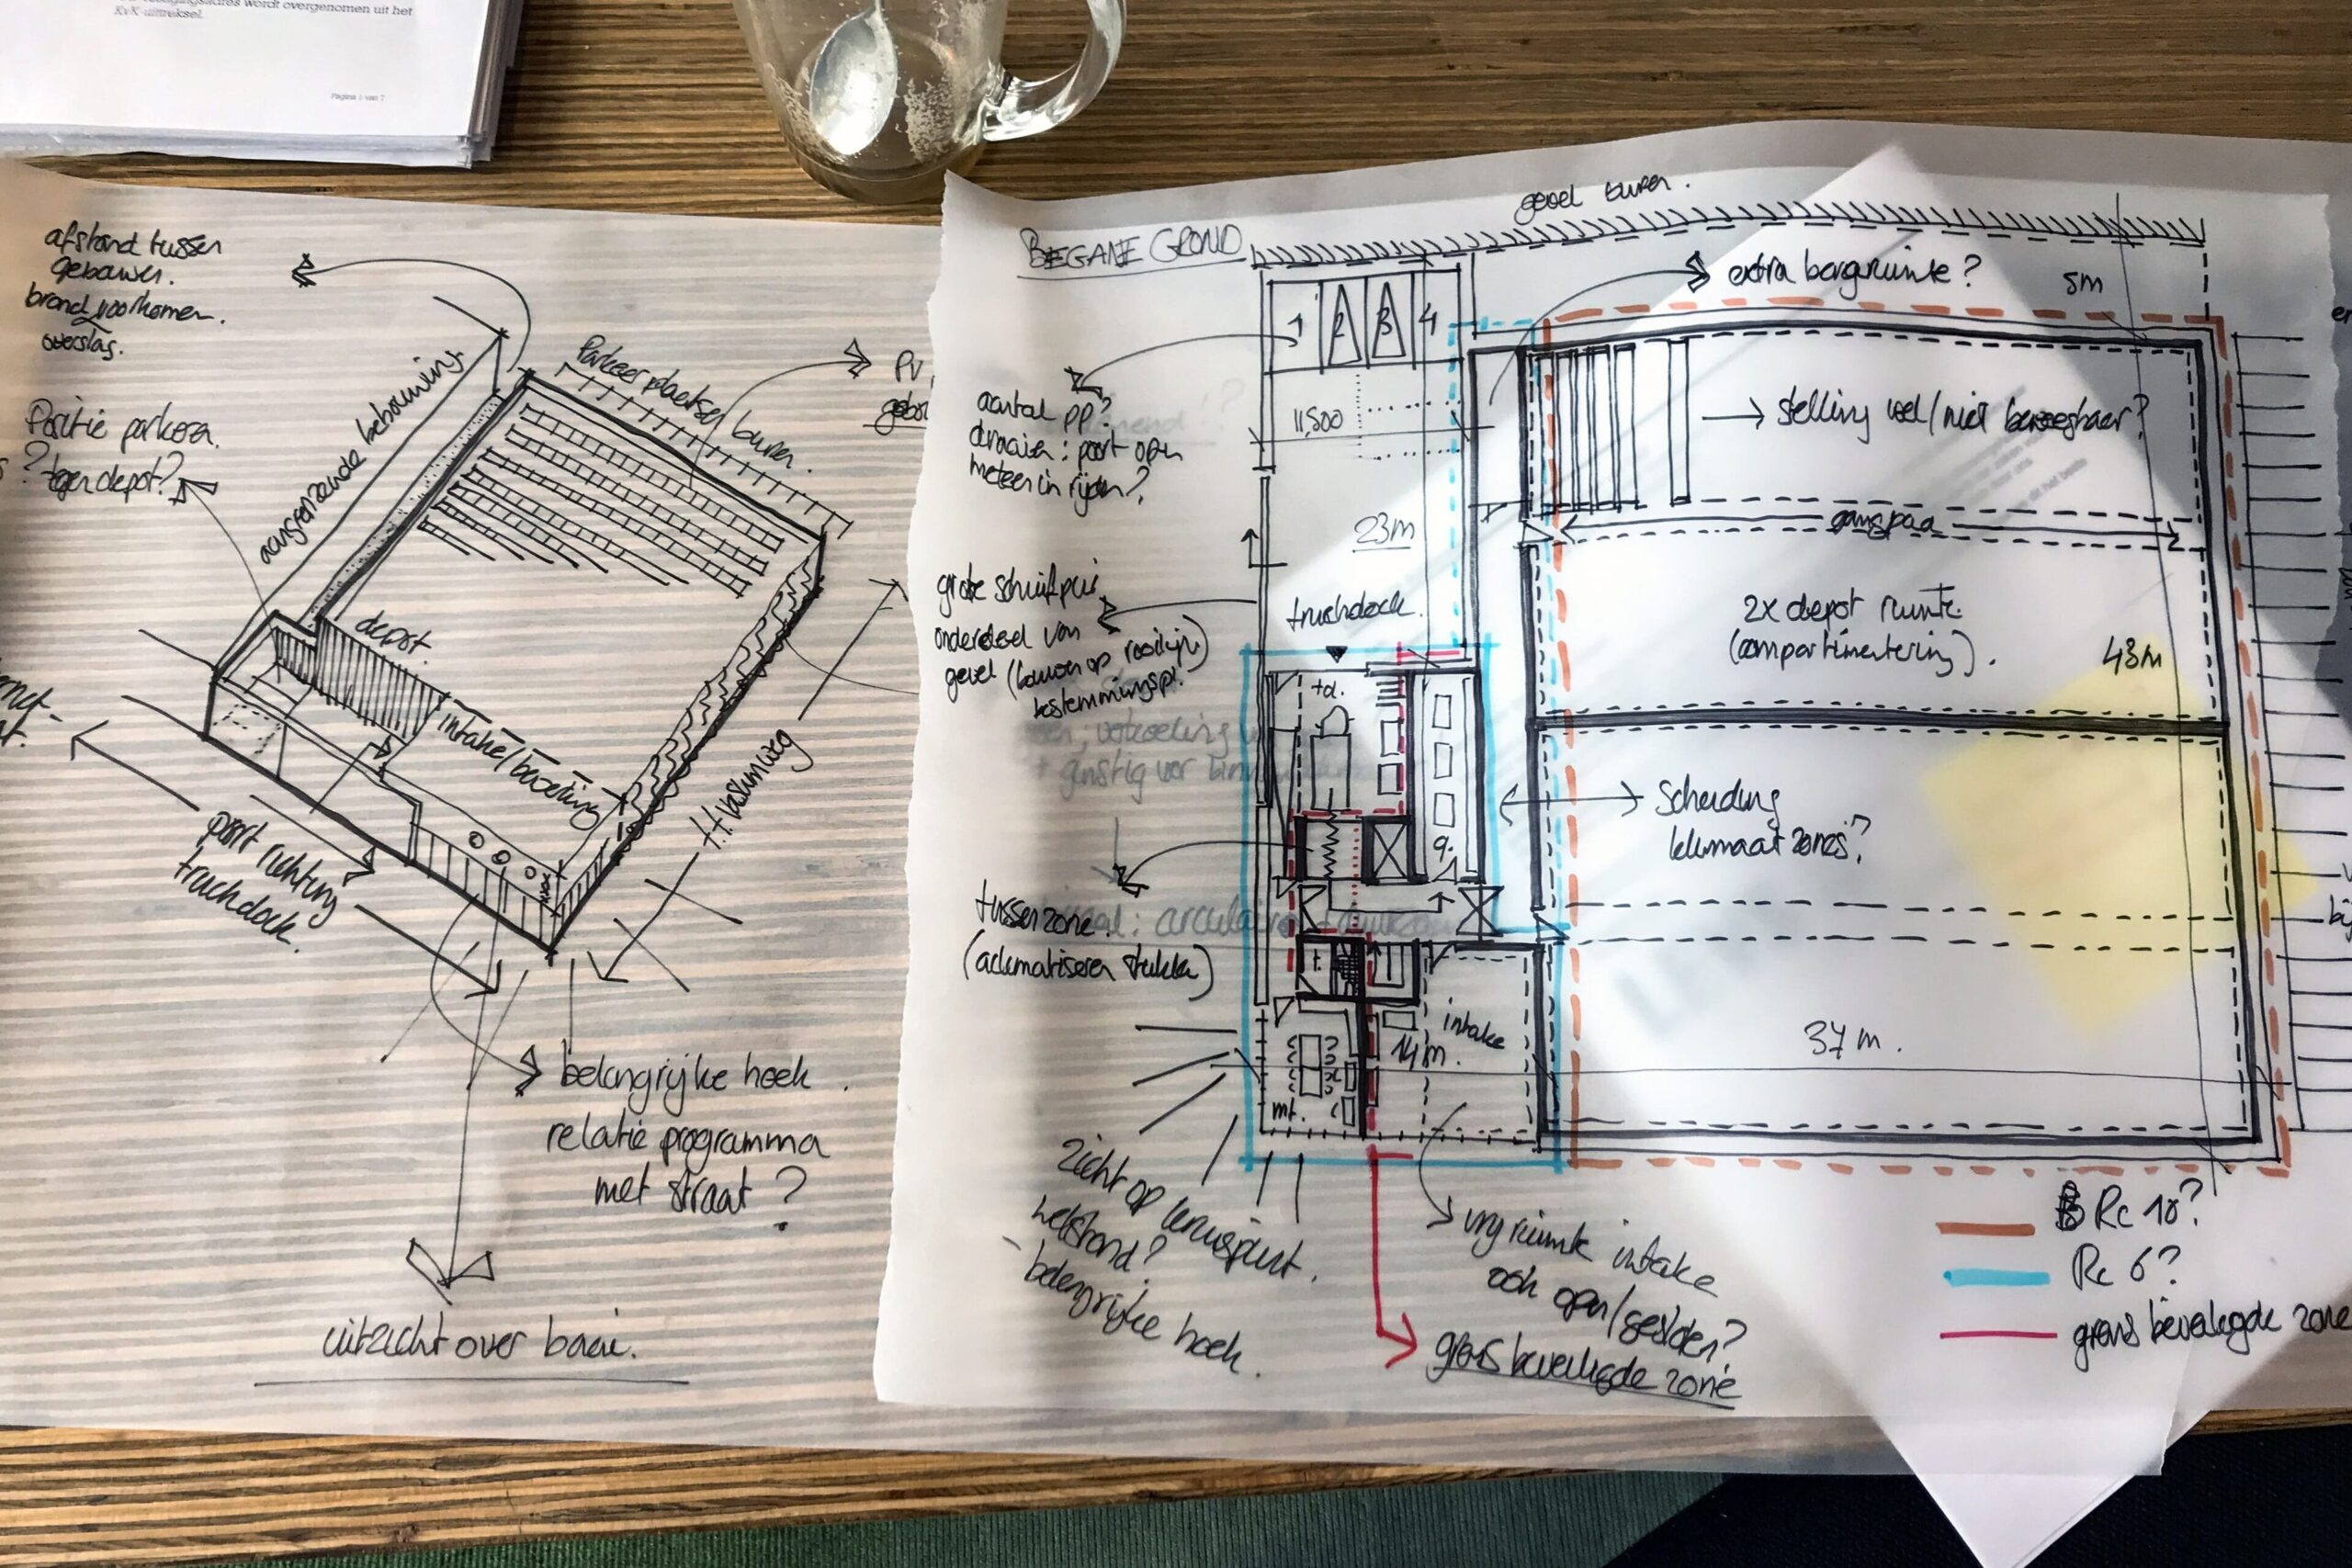 wordt overgenomen uit het
KvK-uittreksel.
Pagina 1 van 7
afstand tussen
gebouwen.
brand voorkomen.
overslag.
Positie parkeren.
? tegen depot?
aangrenzende bebouwing
Parkeerplaatsen buren.
PV
depot.
intake/
poort richting
truckdock.
belangrijke hoek.
relatie programma
met straat?
uitzicht over baai.
BEGANE GROND
gevel buren.
1 2 3 4
extra bergruimte?
5m
aantal pp?
draaien: poort open
meteen in rijden?
11,500
23m
stelling wel/niet beweegbaar?
gangpad
grote schuifpui
onderdeel van
gevel (bouwen op rooilijn)
bestemmingspl.
truckdock.
2x depot ruimte.
(compartimentering).
43m
td.
g.
Scheiding
klimaat zones?
tussenzone.
(aclimatiseren stukken)
t.
intake
14m.
37m.
mt.
zicht op
belangrijke hoek.
vrij ruimte intake
ook open/gesloten?
grens beveiligde zone
Rc 10?
Rc 6?
grens beveiligde zone